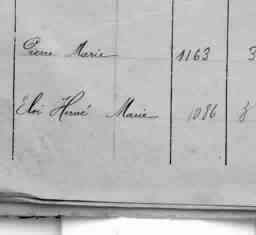 Pierre Marie 1163 3
Eloi Hervé Marie 1086